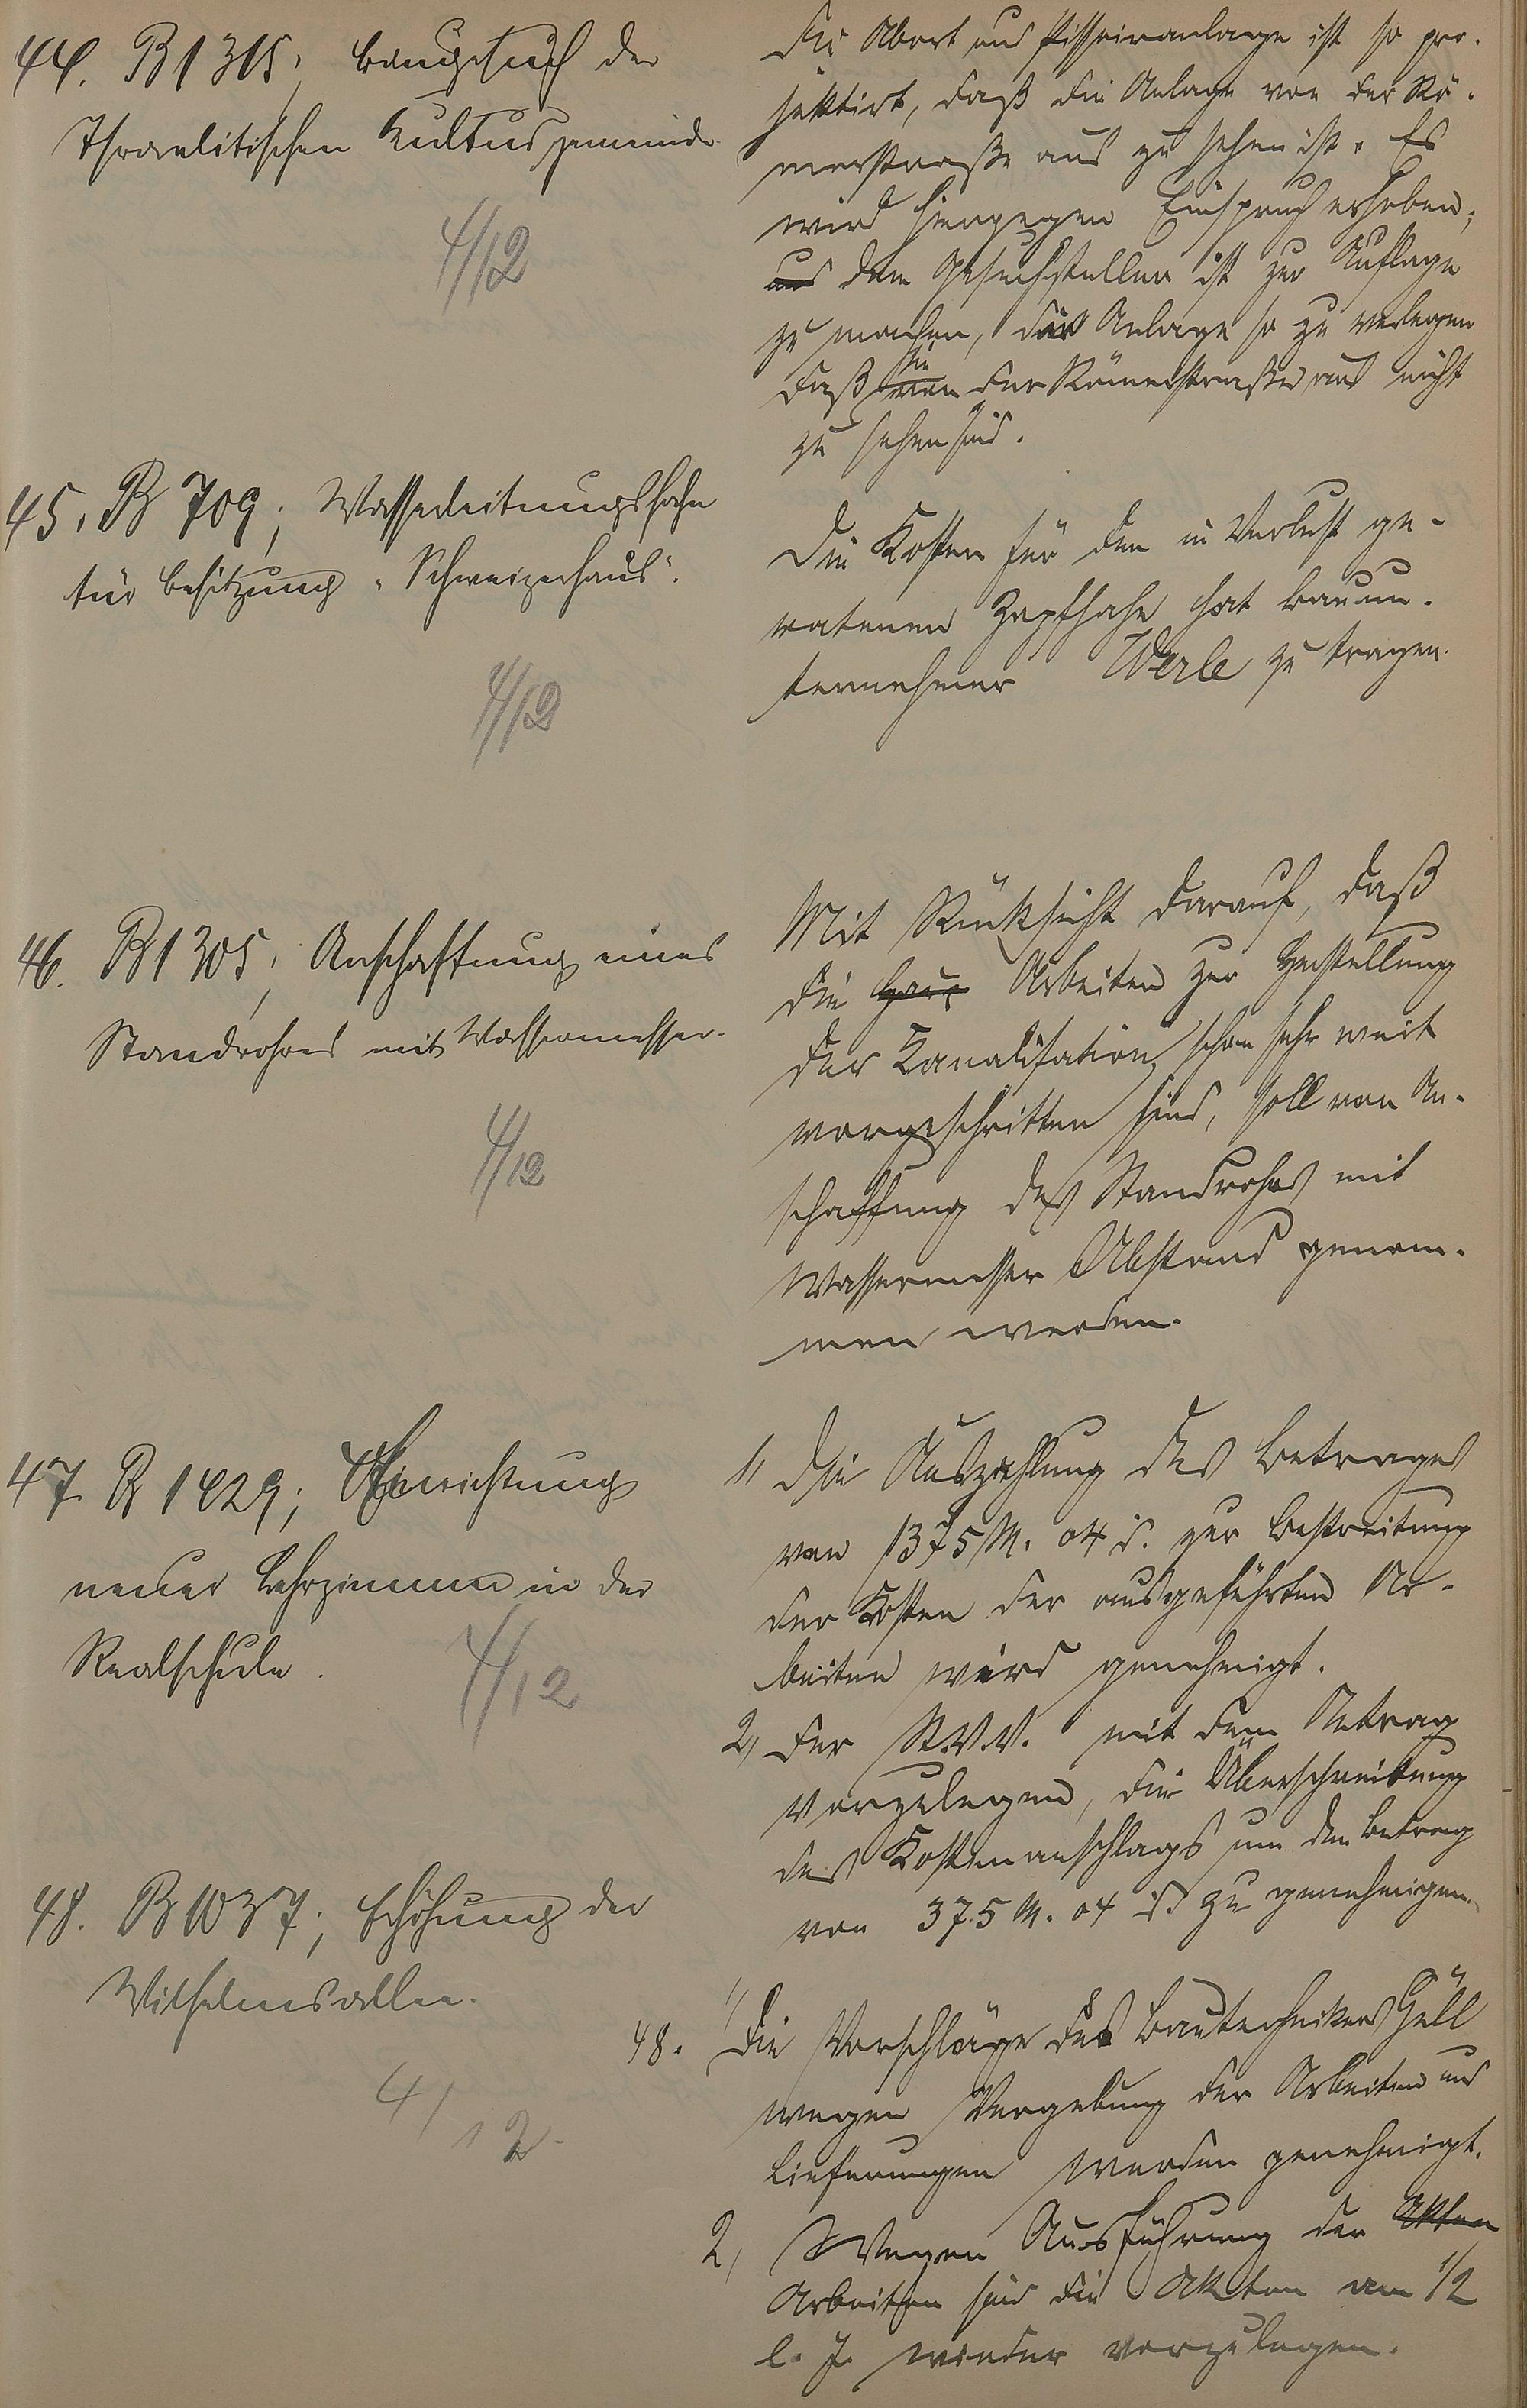 44. B 1315; Baugesuch der
Israelitischen Kultusgemeinde.
4/12
Die Abort und Pissoiranlage ist so pro-
jektirt, daß die Anlage von der Rö-
merstraße aus zu sehen ist. Es
wird hiergegen Einspruch erhoben;
und dem Gesuchsteller ist zur Auflage
zu machen, die Anlage so zu verlegen
daß sie von der Römerstraße aus nicht
zu sehen sind.
45. B 709; Wasserleitungshahn
für Besitzung "Schweizerhaus".
4/12
Die Kosten für den in Verlust ge-
ratenen Zapfhahn hat Bauun-
ternehmer Werle zu tragen.
46. B 1305; Anschaffung eines
Standrohres mit Wassermesser.
4/12
Mit Rücksicht darauf, daß
die Arbeiten zur Herstellung
der Kanalisation schon sehr weit
vorgeschritten sind, soll von An-
schaffung des Standrohres mit
Wassermesser Abstand genom-
men werden.
47. B 1429; Einrichtung
neuer Lehrzimmer in der
Realschule.
4/12
1, Die Auszahlung des Betrages
von 1375 M. 04 d. zur Bestreitung
der Kosten der ausgeführten Ar-
beiten wird genehmigt.
2, Der St.V.V. mit dem Antrag
vorzulegen, die Überschreitung
des Kostenanschlags um den Betrag
von 375 M. 04 d zu genehmigen.
48. B 1037; Erhöhung der
Wilhelmsallee.
4/12.
48. 1, Die Vorschläge des Bautechnikers Göll
wegen Vergebung der Arbeiten und
Lieferungen werden genehmigt.
2, Wegen Ausführung der Akten
Arbeiten sind die Akten am 1/2
l. J. wieder vorzulegen.